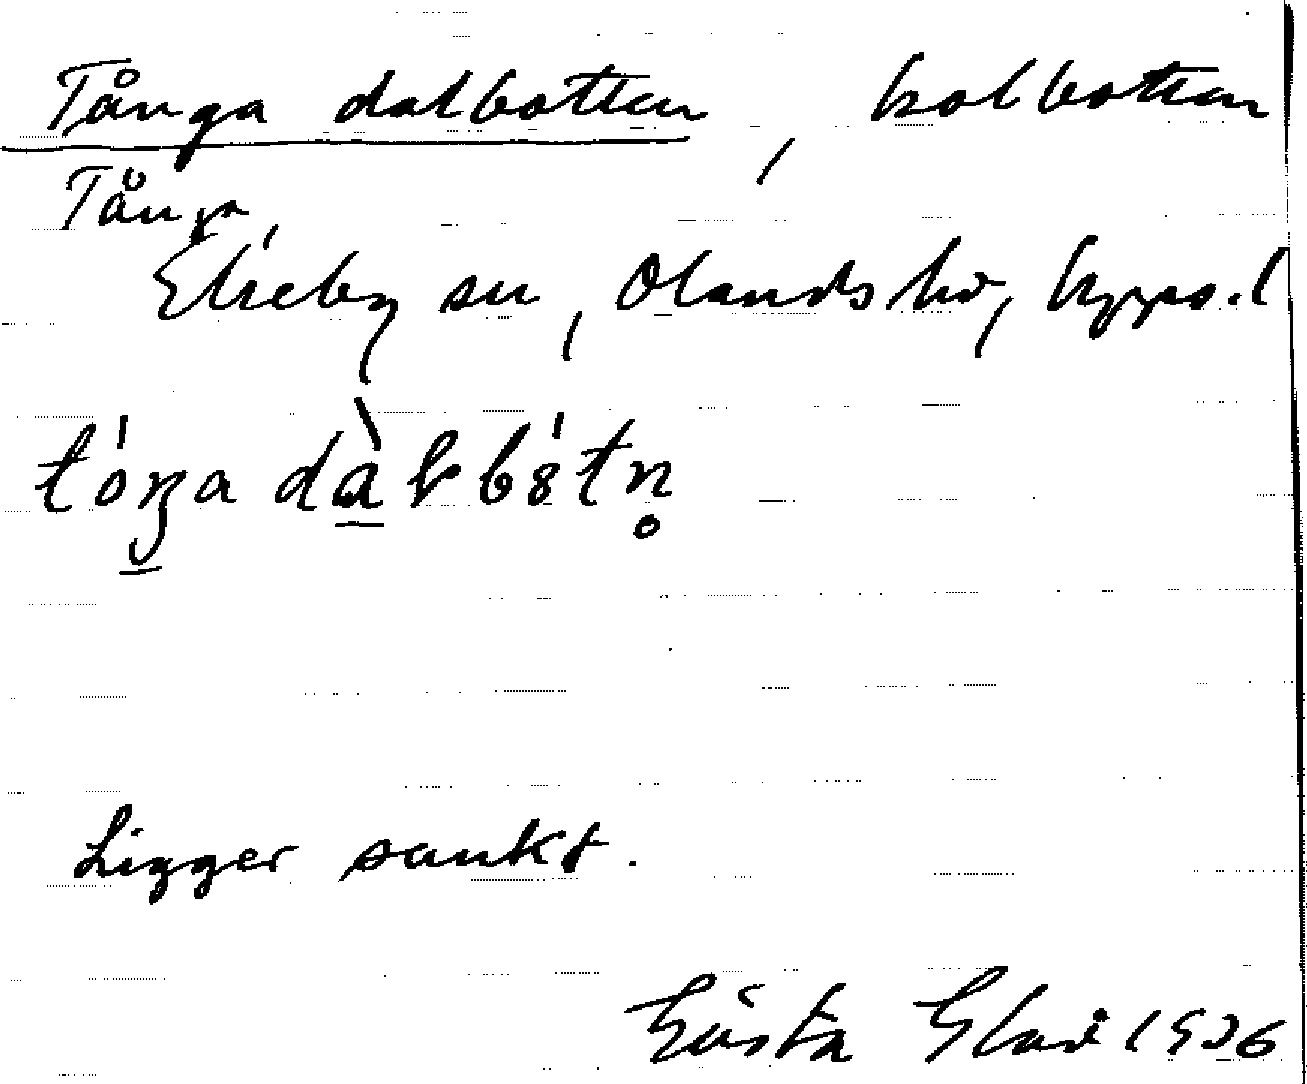 Tånga dalbotten, kolbotten
Tånga,
Ekeby sn, Olands hd, Upps. l
Ligger sankt.
Gösta 1936